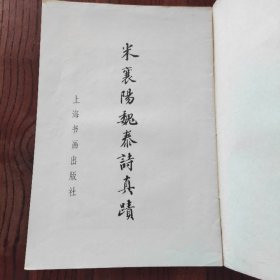 米襄陽魏泰詩真蹟
上海书画出版社